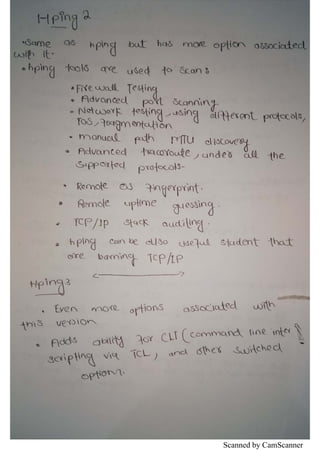 Hping 2
• Same as hping but has more option associated
with it.
• hping tools are used to scans
• Fire wall Testing
• Advanced port scanning
• Network testing, using different protocols,
TOS, fragmentation
• manual path MTU discovery
• Advanced tracoroute, under all the
Supported protocols.
• Remote OS fingerprint.
• Remote uptime guessing.
• TCP/IP stack auditing.
• hping can be also useful student that
are barning TCP/IP
Hping3
• Even more options associated with
this version
• Adds ability for CLI (command line inter
scripting via TCL, and other switched
option.
Scanned by CamScanner